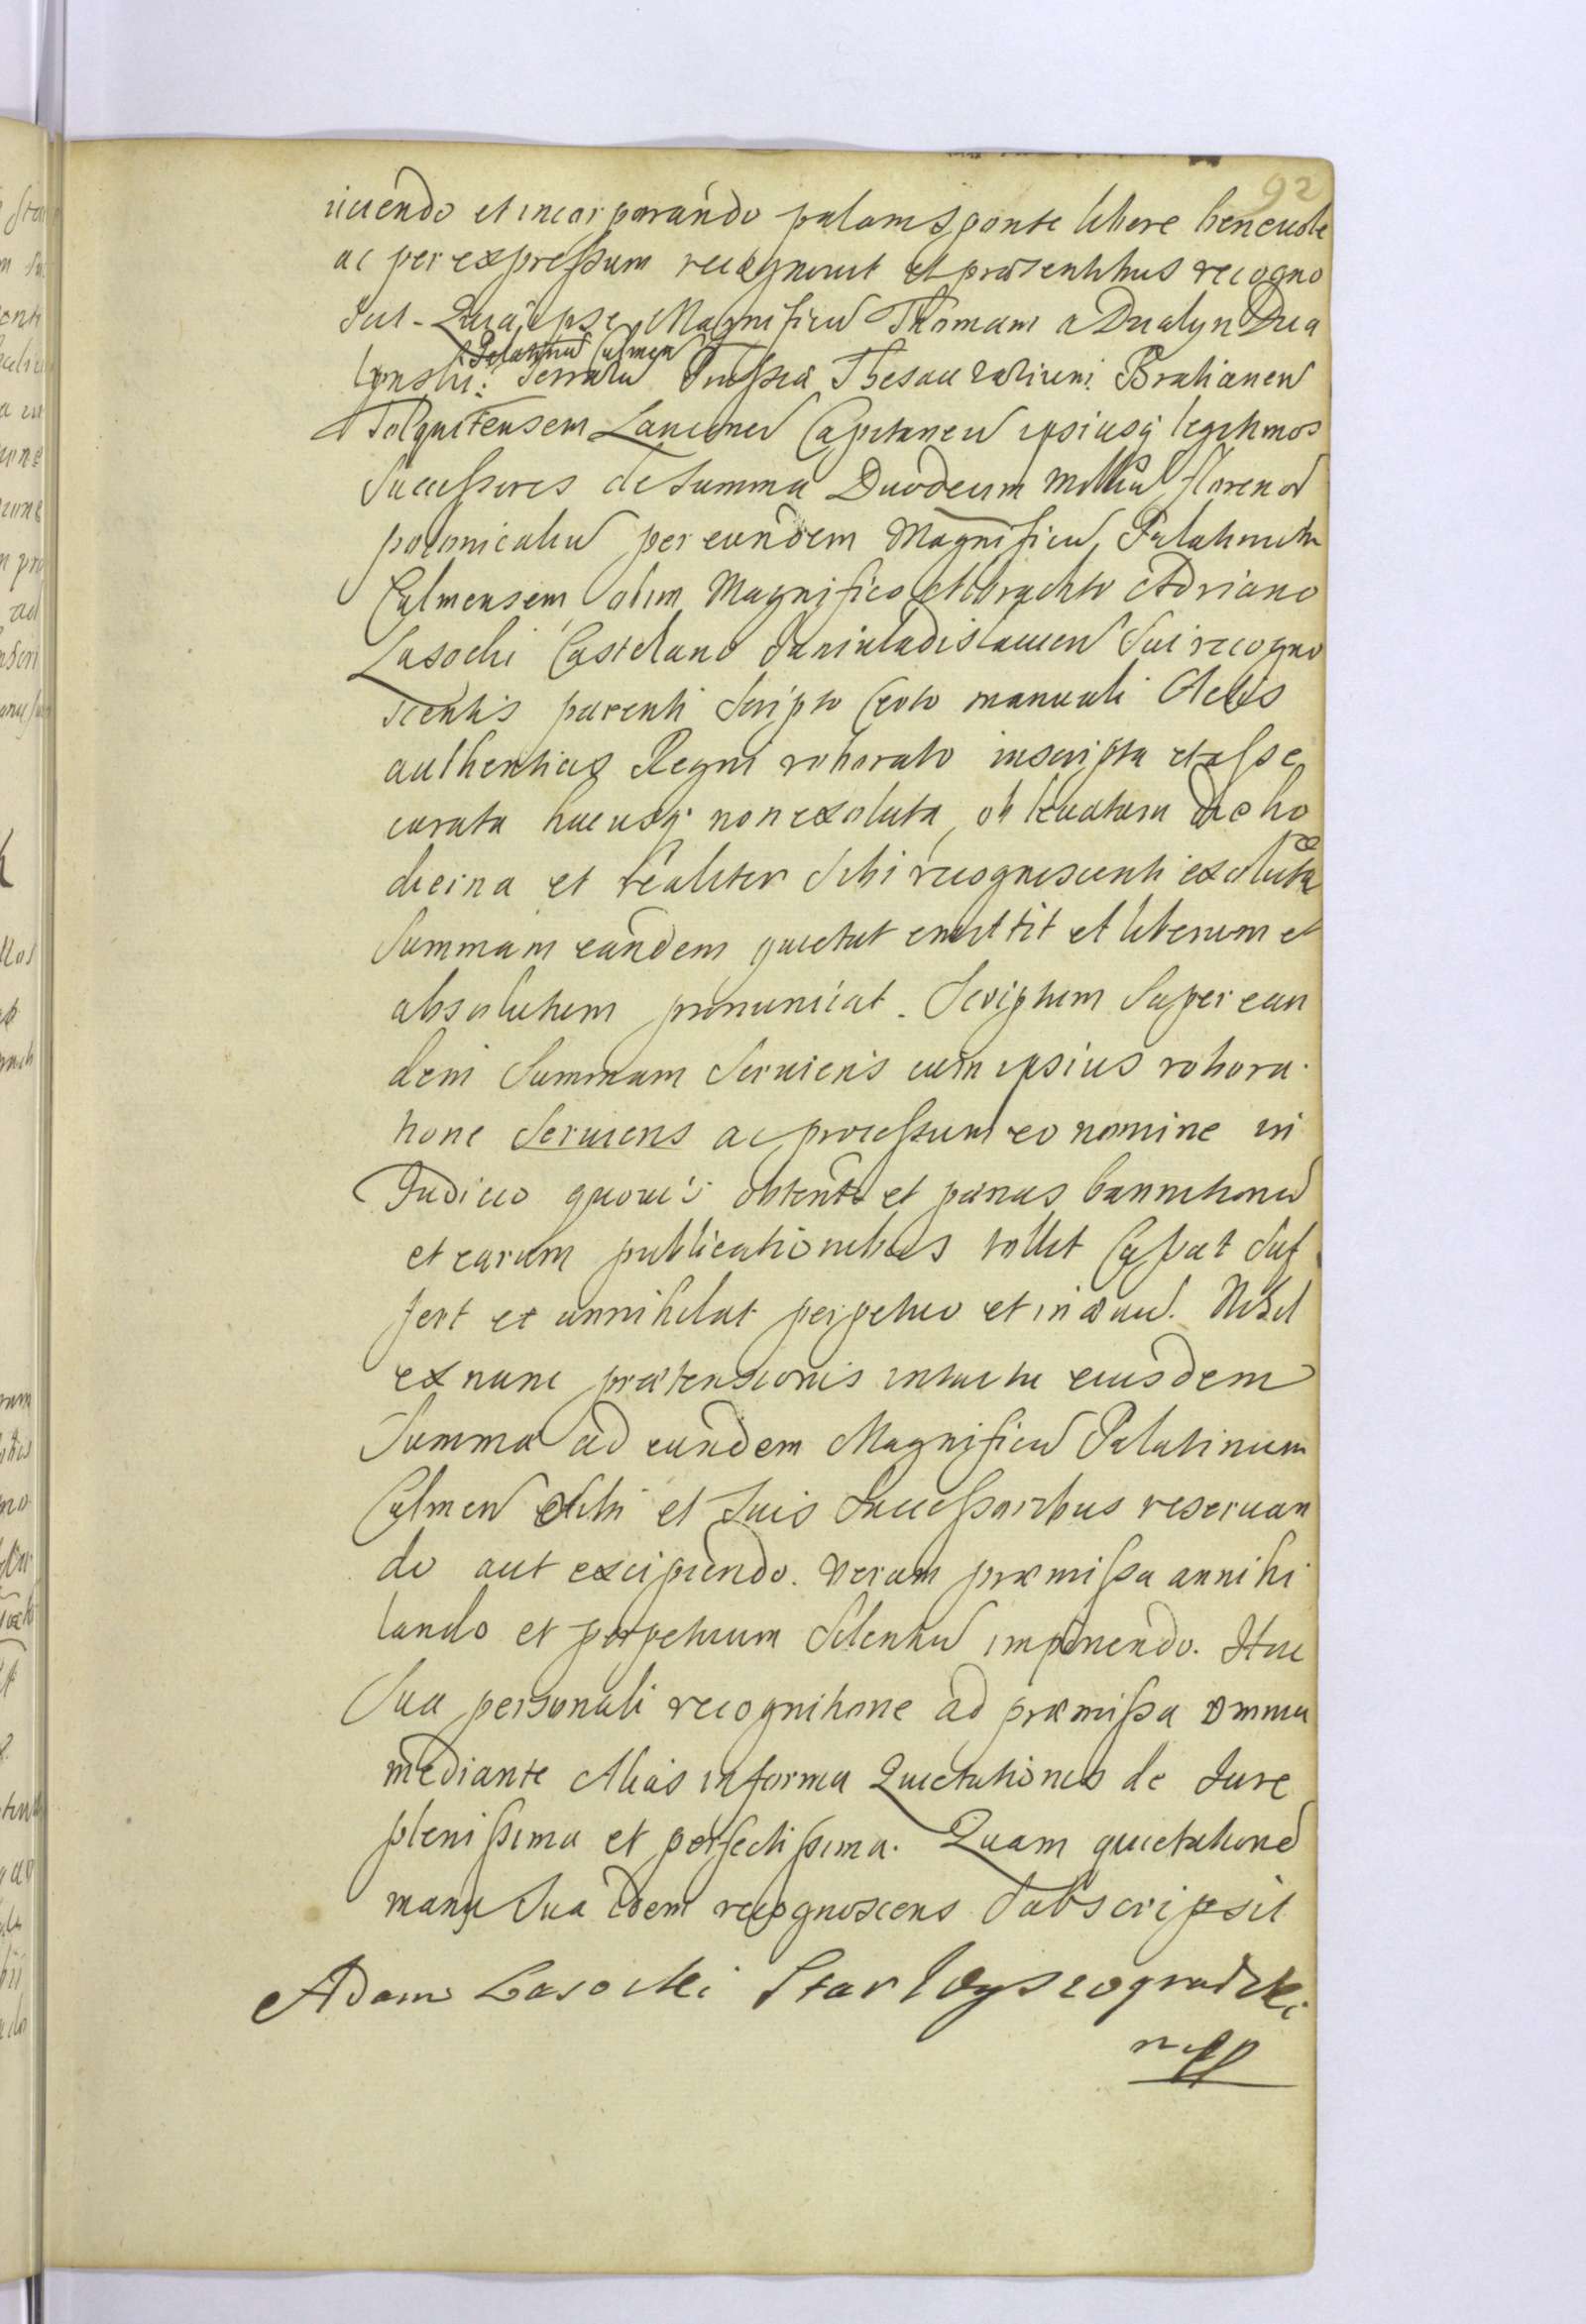 92
iicendo et incorporando palam sponte libere beneuole
ac per expressum recognouit et præsentibus recogno
scit. Quia ipse Magnificu Thomam a Dzialyn Dzia
Palatinu Culmen
lynski Terraru Prussiæ Thesaurarium Bratianen
Golynitensem Capitaneu ipsiusq legitimos
Successores de Summa Duodecim milliu florenor
polonicaliu per eundem Magnificu Palatinum
Culmensem olim Magnifico Adriano
Lasocki Castelano Juniuladislauien Sui recogno
scentis parenti Scripto Certo manuali Actis
authenticis Regni roborato inscripta et asse
curata hucusq non exoluta, ob leuatam die ho
dierna et realiter Sibi recognoscenti exolutam
Summam eandem quietat emittit et liberum et
absolutum pronunciat. Scriptum Super ean
dem Summam Seruiens cum ipsius robora
tione Seruiens ac processum eo nomine in
Judicio quouis obtentu et pænas bannitionu
et earum publicationibus tollit Cassat Suf
fert et annihilat perpetuo et in æuu. Nihil
ex nunc prætensionis intuitu eiusdem
Summæ ad eundem Magnificu Palatinum
Culmen Sibi et Suis Successoribus reseruan
do aut excipiendo. Verum præmissa annihi
lando et perpetuum Silentiu imponendo. Hac
Sua personali recognitione ad præmissa omnia
mediante Alias in forma Quietationis de Jure
plenissima et perfectissima. Quam quietatione
manu Sua idem recognoscens Subscripsit
Adam Lasocki Star Wyszogradzki
mpp